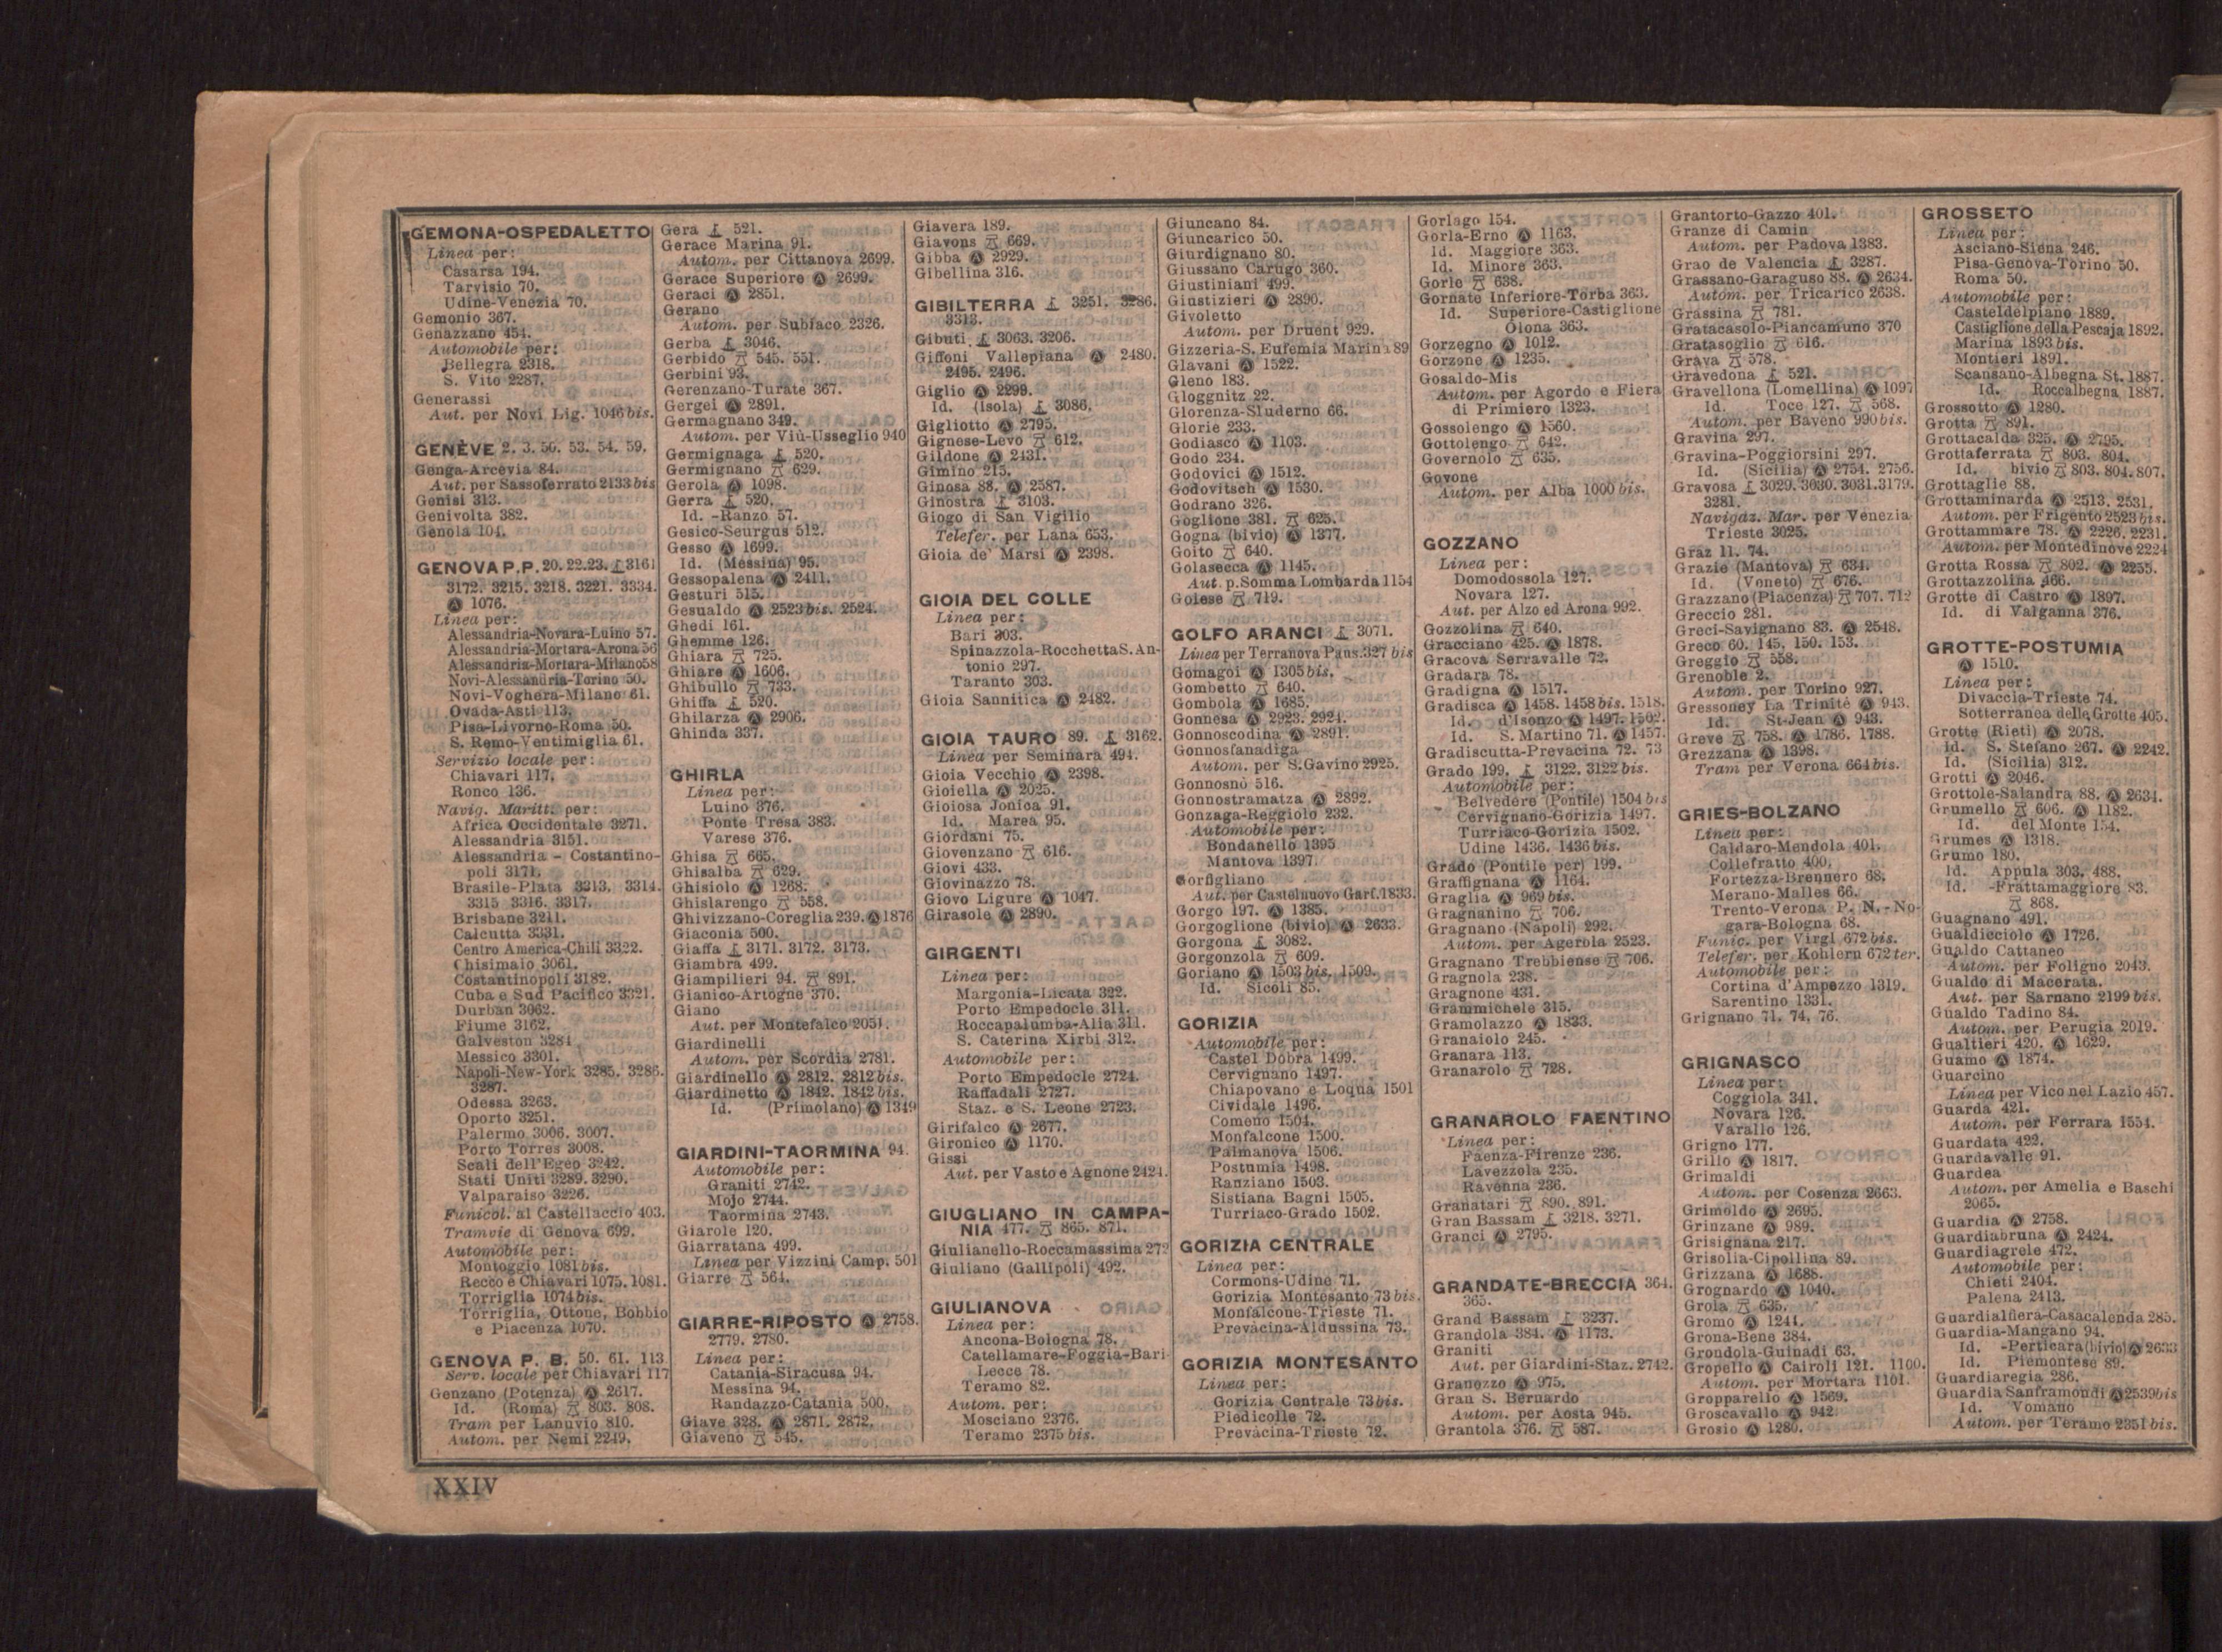 GEMONA-OSPEDALETTO
Linea per:
Casarsa 194.
Tarvisio 70.
Udine-Venezia 70.
Gemonio 367.
Genazzano 454.
Automobile per:
Bellegra 2318.
S. Vito 2287.
Generassi
Aut. per Novi Lig. 1046 bis.
GENÈVE 2. 3. 50. 53. 54. 59.
Genga-Arcevia 84.
Aut. per Sassoferrato 2133 bis
Genisi 313.
Genivolta 382.
Genola 104.
GENOVA P.P. 20. 22. 23. 3161
3172. 3215. 3218. 3221. 3334.
Ⓐ 1076.
Linea per:
Alessandria-Novara-Luino 57.
Alessandria-Mortara-Arona 56
Alessandria-Mortara-Milano 58
Novi-Alessandria-Torino 50.
Novi-Voghera-Milano 61.
Ovada-Asti 113.
Pisa-Livorno-Roma 50.
S. Remo-Ventimiglia 61.
Servizio locale per:
Chiavari 117.
Ronco 136.
Navig. Maritt. per:
Africa Occidentale 3271.
Alessandria 3151.
Alessandria - Costantino-
poli 3171.
Brasile-Plata 3313. 3314.
3315 3316. 3317.
Brisbane 3211.
Calcutta 3331.
Centro America-Chili 3322.
Chisimaio 3061.
Costantinopoli 3182.
Cuba e Sud Pacifico 3321.
Durban 3062.
Fiume 3162.
Galveston 3284
Messico 3301.
Napoli-New-York 3285. 3286.
3287.
Odessa 3263.
Oporto 3251.
Palermo 3006. 3007.
Porto Torres 3008.
Scali dell'Egeo 3242.
Stati Uniti 3289. 3290.
Valparaiso 3226.
Funicol. al Castellaccio 403.
Tramvie di Genova 699.
Automobile per:
Montoggio 1081 bis.
Recco e Chiavari 1075. 1081.
Torriglia 1074 bis.
Torriglia, Ottone, Bobbio
e Piacenza 1070.
GENOVA P. B. 50. 61. 113
Serv. locale per Chiavari 117
Genzano (Potenza) Ⓐ 2617.
Id. (Roma) 803. 808.
Tram per Lanuvio 810.
Autom. per Nemi 2249.
Gera 521.
Gerace Marina 91.
Autom. per Cittanova 2699.
Gerace Superiore Ⓐ 2699.
Geraci Ⓐ 2851.
Gerano
Autom. per Subiaco 2326.
Gerba 3046.
Gerbido 545. 551.
Gerbini 93.
Gerenzano-Turate 367.
Gergei Ⓐ 2891.
Germagnano 349.
Autom. per Viù-Usseglio 940
Germignaga 520.
Germignano 629.
Gerola Ⓐ 1098.
Gerra 520.
Id. -Ranzo 57.
Gesico-Seurgus 512.
Gesso Ⓐ 1699.
Id. (Messina) 95.
Gessopalena Ⓐ 2411.
Gesturi 515.
Gesualdo Ⓐ 2523 bis. 2524.
Ghedi 161.
Ghemme 126.
Ghiara 725.
Ghiare Ⓐ 1606.
Ghibullo 733.
Ghiffa 520.
Ghilarza Ⓐ 2906.
Ghinda 337.
GHIRLA
Linea per:
Luino 376.
Ponte Tresa 383.
Varese 376.
Ghisa 665.
Ghisalba 629.
Ghisiolo Ⓐ 1268.
Ghislarengo 558.
Ghivizzano-Coreglia 239. Ⓐ 1876
Giaconia 500.
Giaffa 3171. 3172. 3173.
Giambra 499.
Giampilieri 94. 891.
Gianico-Artogne 370.
Giano
Aut. per Montefalco 2051.
Giardinelli
Autom. per Scordia 2781.
Giardinello Ⓐ 2812. 2812 bis.
Giardinetto Ⓐ 1842. 1842 bis.
Id. (Primolano) Ⓐ 1349
GIARDINI-TAORMINA 94.
Automobile per:
Graniti 2742.
Mojo 2744.
Taormina 2743.
Giarole 120.
Giarratana 499.
Linea per Vizzini Camp. 501
Giarre 564.
GIARRE-RIPOSTO Ⓐ 2758.
2779. 2780.
Linea per:
Catania-Siracusa 94.
Messina 94.
Randazzo-Catania 500.
Giave 328. Ⓐ 2871. 2872.
Giaveno 545.
Giavera 189.
Giavons 669.
Gibba Ⓐ 2929.
Gibellina 316.
GIBILTERRA 3251. 3286.
3313.
Gibuti 3063. 3206.
Giffoni Vallepiana Ⓐ 2480.
2495. 2496.
Giglio Ⓐ 2299.
Id. (Isola) 3086.
Gigliotto Ⓐ 2795.
Gignese-Levo 612.
Gildone Ⓐ 2431.
Gimino 215.
Ginosa 88. Ⓐ 2587.
Ginostra 3103.
Giogo di San Vigilio
Telefer. per Lana 653.
Gioia de' Marsi Ⓐ 2398.
GIOIA DEL COLLE
Linea per:
Bari 303.
Spinazzola-Rocchetta S. An-
tonio 297.
Taranto 303.
Gioia Sannitica Ⓐ 2482.
GIOIA TAURO 89. 3162.
Linea per Seminara 494.
Gioia Vecchio Ⓐ 2398.
Gioiella Ⓐ 2025.
Gioiosa Jonica 91.
Id. Marea 95.
Giordani 75.
Giovenzano 616.
Giovi 433.
Giovinazzo 78.
Giovo Ligure Ⓐ 1047.
Girasole Ⓐ 2890.
GIRGENTI
Linea per:
Margonia-Licata 322.
Porto Empedocle 311.
Roccapalumba-Alia 311.
S. Caterina Xirbi 312.
Automobile per:
Porto Empedocle 2724.
Raffadali 2727.
Staz. e S. Leone 2723.
Girifalco Ⓐ 2677.
Gironico Ⓐ 1170.
Gissi
Aut. per Vasto e Agnone 2424.
GIUGLIANO IN CAMPA-
NIA 477. 865. 871.
Giulianello-Roccamassima 272
Giuliano (Gallipoli) 492.
GIULIANOVA
Linea per:
Ancona-Bologna 78.
Catellamare-Foggia-Bari-
Lecce 78.
Teramo 82.
Autom. per:
Mosciano 2376.
Teramo 2375 bis.
Giuncano 84.
Giuncarico 50.
Giurdignano 80.
Giussano Carugo 360.
Giustiniani 499.
Giustizieri Ⓐ 2890.
Givoletto
Autom. per Druent 929.
Gizzeria-S. Eufemia Marina 89
Glavani Ⓐ 1522.
Gleno 183.
Gloggnitz 22.
Glorenza-Sluderno 66.
Glorie 233.
Godiasco Ⓐ 1103.
Godo 234.
Godovici Ⓐ 1512.
Godovitsch Ⓐ 1530.
Godrano 326.
Goglione 381. 625.
Gogna (bivio) Ⓐ 1377.
Goito 640.
Golasecca Ⓐ 1145.
Aut. p. Somma Lombarda 1154
Golese 719.
GOLFO ARANCI 3071.
Linea per Terranova Paus. 327 bis
Gomagoi Ⓐ 1305 bis.
Gombetto 640.
Gombola Ⓐ 1685.
Gonnesa Ⓐ 2923. 2924.
Gonnoscodina Ⓐ 2891.
Gonnosfanadiga
Autom. per S. Gavino 2925.
Gonnosnò 516.
Gonnostramatza Ⓐ 2892.
Gonzaga-Reggiolo 232.
Automobile per:
Bondanello 1395
Mantova 1397.
Gorfigliano
Aut. per Castelnuovo Garf. 1833.
Gorgo 197. Ⓐ 1385.
Gorgoglione (bivio) Ⓐ 2633.
Gorgona 3082.
Gorgonzola 609.
Goriano Ⓐ 1503 bis. 1509.
Id. Sicoli 85.
GORIZIA
Automobile per:
Castel Dobra 1499.
Cervignano 1497.
Chiapovano e Loqua 1501
Cividale 1496.
Comeno 1504.
Monfalcone 1500.
Palmanova 1506.
Postumia 1498.
Ranziano 1503.
Sistiana Bagni 1505.
Turriaco-Grado 1502.
GORIZIA CENTRALE
Linea per:
Cormons-Udine 71.
Gorizia Montesanto 73 bis.
Monfalcone-Trieste 71.
Prevàcina-Aidussina 73.
GORIZIA MONTESANTO
Linea per:
Gorizia Centrale 73 bis.
Piedicolle 72.
Prevàcina-Trieste 72.
Gorlago 154.
Gorla-Erno Ⓐ 1163.
Id. Maggiore 363.
Id. Minore 363.
Gorle 638.
Gornate Inferiore-Torba 363.
Id. Superiore-Castiglione
Olona 363.
Gorzegno Ⓐ 1012.
Gorzone Ⓐ 1235.
Gosaldo-Mis
Autom. per Agordo e Fiera
di Primiero 1323.
Gossolengo Ⓐ 1560.
Gottolengo 642.
Governolo 635.
Govone
Autom. per Alba 1000 bis.
GOZZANO
Linea per:
Domodossola 127.
Novara 127.
Aut. per Alzo ed Arona 992.
Gozzolina 640.
Gracciano 425. Ⓐ 1878.
Gracova Serravalle 72.
Gradara 78.
Gradigna Ⓐ 1517.
Gradisca Ⓐ 1458. 1458 bis. 1518.
Id. d'Isonzo Ⓐ 1497. 1502.
Id. S. Martino 71. Ⓐ 1457.
Gradiscutta-Prevacina 72. 73
Grado 199. 3122. 3122 bis.
Automobile per:
Belvedere (Pontile) 1504 bis
Cervignano-Gorizia 1497.
Turriaco-Gorizia 1502.
Udine 1436. 1436 bis.
Grado (Pontile per) 199.
Graffignana Ⓐ 1164.
Graglia Ⓐ 969 bis.
Gragnanino 706.
Gragnano (Napoli) 292.
Autom. per Agerola 2523.
Gragnano Trebbiense 706.
Gragnola 238.
Gragnone 431.
Grammichele 315.
Gramolazzo Ⓐ 1833.
Granaiolo 245.
Granara 113.
Granarolo 728.
GRANAROLO FAENTINO
Linea per:
Faenza-Firenze 236.
Lavezzola 235.
Ravenna 236.
Granatari 890. 891.
Gran Bassam 3218. 3271.
Granci Ⓐ 2795.
GRANDATE-BRECCIA 364.
365.
Grand Bassam 3237.
Grandola 384. Ⓐ 1173.
Graniti
Aut. per Giardini-Staz. 2742.
Granozzo Ⓐ 975.
Gran S. Bernardo
Autom. per Aosta 945.
Grantola 376. 587.
Grantorto-Gazzo 401.
Granze di Camin
Autom. per Padova 1383.
Grao de Valencia 3287.
Grassano-Garaguso 88. Ⓐ 2634.
Autom. per Tricarico 2638.
Grassina 781.
Gratacasolo-Piancamuno 370
Gratasoglio 616.
Grava 578.
Gravedona 521.
Gravellona (Lomellina) Ⓐ 1097
Id. Toce 127. 568.
Autom. per Baveno 990 bis.
Gravina 297.
Gravina-Poggiorsini 297.
Id. (Sicilia) Ⓐ 2754. 2756.
Gravosa 3029. 3030. 3031. 3179.
3281.
Navigaz. Mar. per Venezia
Trieste 3025.
Graz 11. 74.
Grazie (Mantova) 634.
Id. (Voneto) 676.
Grazzano (Piacenza) 707. 712
Greccio 281.
Greci-Savignano 83. Ⓐ 2548.
Greco 60. 145. 150. 153.
Greggio 558.
Grenoble 2.
Autom. per Torino 927.
Gressoney La Trinité Ⓐ 943.
Id. St-Jean Ⓐ 943.
Greve 758. Ⓐ 1786. 1788.
Grezzana Ⓐ 1398.
Tram per Verona 664 bis.
GRIES-BOLZANO
Linea per:
Caldaro-Mendola 401.
Collefratto 400.
Fortezza-Brennero 68.
Merano-Malles 66.
Trento-Verona P. N.-No-
gara-Bologna 68.
Funic. per Virgl 672 bis.
Telefer. per Kohlern 672 ter.
Automobile per:
Cortina d'Ampezzo 1319.
Sarentino 1331.
Grignano 71. 74. 76.
GRIGNASCO
Linea per:
Coggiola 341.
Novara 126.
Varallo 126.
Grigno 177.
Grillo Ⓐ 1817.
Grimaldi
Autom. per Cosenza 2663.
Grimoldo Ⓐ 2695.
Grinzane Ⓐ 989.
Grisignana 217.
Grisolia-Cipollina 89.
Grizzana Ⓐ 1688.
Grognardo Ⓐ 1040.
Grola 635.
Gromo Ⓐ 1241.
Grona-Bene 384.
Grondola-Guinadi 63.
Gropello Ⓐ Cairoli 121. 1100.
Autom. per Mortara 1101.
Gropparello Ⓐ 1569.
Groscavallo Ⓐ 942
Grosio Ⓐ 1280.
GROSSETO
Linea per:
Asciano-Siena 246.
Pisa-Genova-Torino 50.
Roma 50.
Automobile per:
Casteldelpiano 1889.
Castiglione della Pescaja 1892.
Marina 1893 bis.
Montieri 1891.
Scansano-Albegna St. 1887.
Id. Roccalbegna 1887.
Grossotto Ⓐ 1280.
Grotta 891.
Grottacalda 325. Ⓐ 2795.
Grottaferrata 803. 804.
Id. bivio 803. 804. 807.
Grottaglie 88.
Grottaminarda Ⓐ 2513. 2531.
Autom. per Frigento 2523 bis.
Grottammare 78. Ⓐ 2226. 2231.
Autom. per Montedinove 2224
Grotta Rossa 802. Ⓐ 2255.
Grottazzolina 466.
Grotte di Castro Ⓐ 1897.
Id. di Valganna 376.
GROTTE-POSTUMIA
Ⓐ 1510.
Linea per:
Divaccia-Trieste 74.
Sotterranea delle Grotte 405.
Grotte (Rieti) Ⓐ 2078.
Id. S. Stefano 267. Ⓐ 2242.
Id. (Sicilia) 312.
Grotti Ⓐ 2046.
Grottole-Salandra 88. Ⓐ 2634.
Grumello 606. Ⓐ 1182.
Id. del Monte 154.
Grumes Ⓐ 1318.
Grumo 180.
Id. Appula 303. 488.
Id. -Frattamaggiore 83.
868.
Guagnano 491.
Gualdicciolo Ⓐ 1726.
Gualdo Cattaneo
Autom. per Foligno 2043.
Gualdo di Macerata.
Aut. per Sarnano 2199 bis.
Gualdo Tadino 84.
Autom. per Perugia 2019.
Gualtieri 420. Ⓐ 1629.
Guamo Ⓐ 1874.
Guarcino
Linea per Vico nel Lazio 457.
Guarda 421.
Autom. per Ferrara 1554.
Guardata 422.
Guardavalle 91.
Guardea
Autom. per Amelia e Baschi
2065.
Guardia Ⓐ 2758.
Guardiabruna Ⓐ 2424.
Guardiagrele 472.
Automobile per:
Chieti 2404.
Palena 2413.
Guardialfiera-Casacalenda 285.
Guardia-Mangano 94.
Id. -Perticara (bivio) Ⓐ 2633
Id. Piemontese 89.
Guardiaregia 286.
Guardia Sanframondi Ⓐ 2539 bis
Id. Vomano
Autom. per Teramo 2351 bis.
XXIV